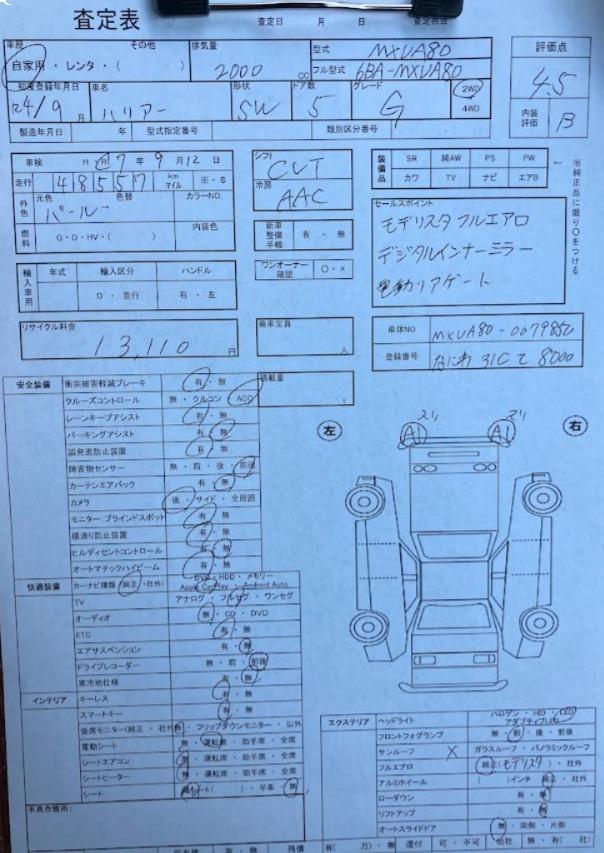 査定表
査定日 年 月 日 査定担当
車歴 その他 排気量 型式 MXUA80
自家用・レンタ・( ) 2000 cc フル型式 6BA-MXUA80
評価点 4.5
初度登録年月日 車名 形状 ドア数 グレード 2WD
R4/9月 ハリアー SW 5 G 4WD
内装評価 B
製造年月日 年 型式指定番号 類別区分番号
車検 H R 7年 9月 12日
走行 48557 km マイル ※・$
外色 元色 色替 カラーNO.
パール
燃料 G・D・HV・( ) 内装色
シフト CVT
冷房 AAC
新車整備手帳 有・無
ワンオーナー確認 ○・×
装備品 SR 純AW PS PW
カワ TV ナビ エアB
←※純正品に限り○をつける
セールスポイント
モデリスタフルエアロ
デジタルインナーミラー
電動リアゲート
輸入車用 年式 輸入区分 ハンドル
D・並行 右・左
リサイクル料金 13,110円
乗車定員 人
積載量 t
車体NO MXUA80-0079850
登録番号 8000
安全装備 衝突被害軽減ブレーキ 有・無
クルーズコントロール 無・クルコン・ACC
レーンキープアシスト 有・無
パーキングアシスト 有・無
誤発進防止装置 有・無
障害物センサー 無・前・後・前後
カーテンエアバック 有・無
カメラ 後・サイド・全周囲
モニター:ブラインドスポット 有・無
横滑り防止装置 有・無
ヒルディセントコントロール 有・無
オートマチックハイビーム 有・無
快適装備 カーナビ種類(純正・社外) DVD・HDD・メモリー
Apple CarPlay・Android Auto
TV アナログ・フルセグ・ワンセグ
オーディオ 無・CD・DVD
ETC 有・無
エアサスペンション 有・無
ドライブレコーダー 無・前・前後
寒冷地仕様 有・無
インテリア キーレス 有・無
スマートキー 有・無
後席モニター(純正・社外) 無・フリップダウンモニター・以外
電動シート 無・運転席・助手席・全席
シートエアコン 無・運転席・助手席・全席
シートヒーター 無・運転席・助手席・全席
シート ( )・半革・無
不具合箇所:
左 右
A1 A1
エクステリア ヘッドライト ハロゲン・HID・LED
アダプティブLED
フロントフォグランプ 無・前・後・前後
サンルーフ × ガラスルーフ・パノラミックルーフ
フルエアロ 純正(モデリスタ)・社外
アルミホイール ( )インチ 純正・社外
ローダウン 有・無
リフトアップ 有・無
オートスライドドア 無・両側・片側
有( 万)・無 還付 可・不可 他社 無・有( 社)